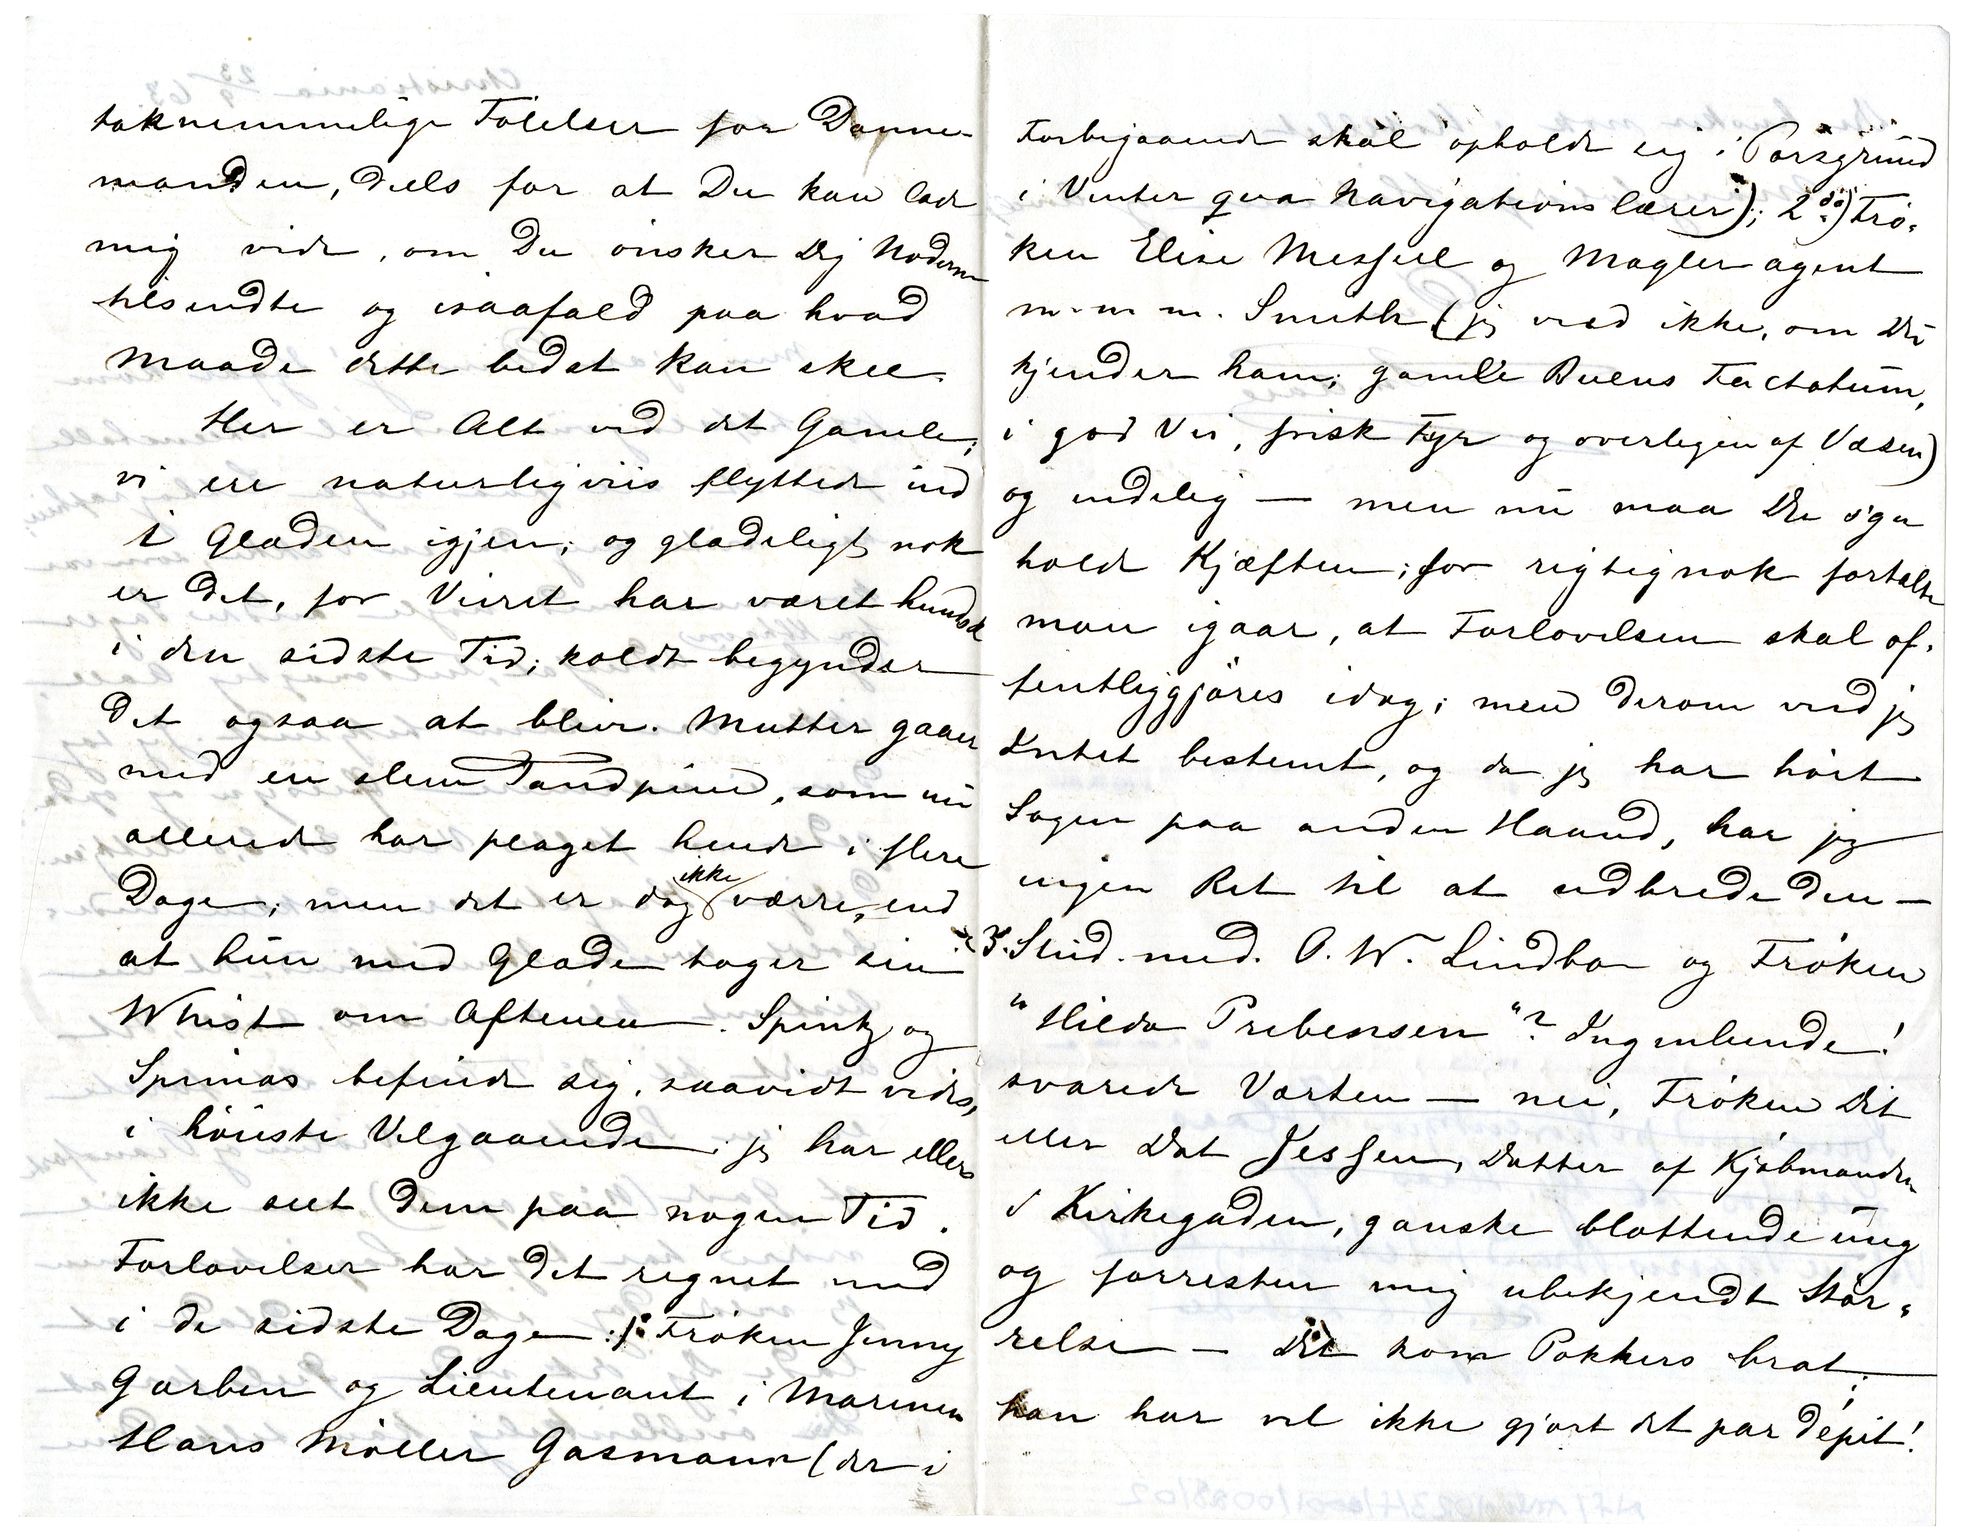 taknemmelige Følelser for Danne-
manden, deels for at Du kan lade
mig vide, om Du ønsker Dig Noderne
tilsendte og isaafald paa hvad
Maade dette bedst kan skee.
Her er Alt ved det Gamle;
vi ere naturligviis flyttede ind
i Gladen igjen; og gladeligt nok
er det, for Veiret har været hundsk
i den sidste Tid; koldt begynder
det ogsaa at blive. Mutter gaaer
med en slem Tandpine, som nu
allerede har plaget hende i flere
Dage; men det er dog ikke værre, end
at hun med Glæde tager sin
Whist om Aftenen. Spintz og
Spinas befinde sig, saavidt vides,
i høieste Velgaaende; jeg har ellers
ikke seet dem paa nogen Tid.
Forlovelser har det regnet med
i de sidste Dage: 1: Frøken Jenny
Garben og Lieutenant i Marinen
Hans Møller Gasmann (der i
Forbigaaende skal opholde sig i Porsgrund
i Vinter qua Navigationslærer); 2do) Frø-
ken Elise Messel og Mægleragent
m. m. m. Smith (jeg veed ikke, om Du
kjender ham; gamle Buens Factotum,
i god Vei, frisk Fyr og overlegen af Væsen)
og endelig — men nu maa Du ogsaa
holde Kjæften; for rigtignok fortalte
man igaar, at Forlovelsen skal of-
fentliggjøres idag; men derom veed jeg
Intet bestemt, og da jeg har hørt
Sagen paa anden Haand, har jeg
ingen Ret til at udbrede den —
3. Stud. med. O. W. Lindbo og Frøken
"Hilda Prebensen"? Ingenlunde!
svarede Verten — nei, Frøken Dit
eller Dat Jessen, Datter af Kjøbmanden
i Kirkegaden, ganske blottende ung
og forresten mig ubekjendt Stør-
relse — Det kom Pokkers brat;
han har vel ikke gjort det par dépit!